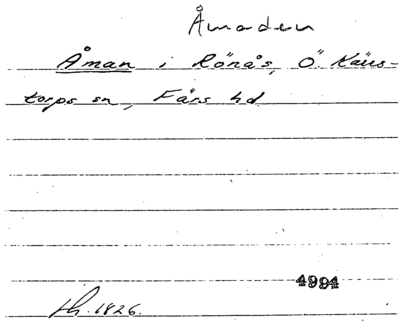 Åmaden
Åman i Rönås, Ö Kärs-
torps sn, Färs hd
4994
th. 1826.